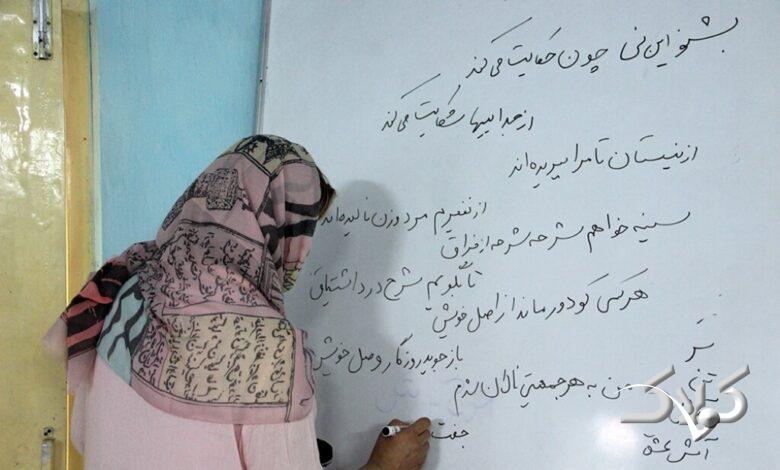 بشنو این نی چون حکایت می‌کند
از جداییها شکایت می‌کند
از نیستان تا مرا ببریده‌اند
از نفیرم مرد و زن نالیده‌اند
سینه خواهم شرحه شرحه از فراق
تا بگویم شرح درد اشتیاق
هر کسی کو دور ماند از اصل خویش
باز جوید روزگار وصل خویش
من به هر جمعیتی نالان شدم
جفت
سر
آتش عشق
کلاک